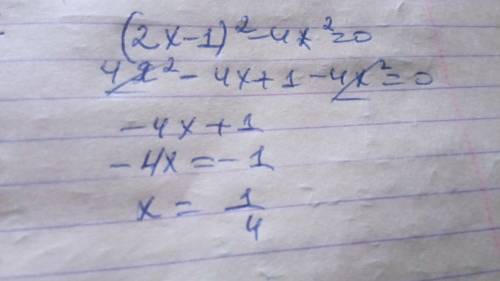 (2x-1)²-4x²=0
4x²-4x+1-4x²=0
-4x+1
-4x=-1
x = 1/4